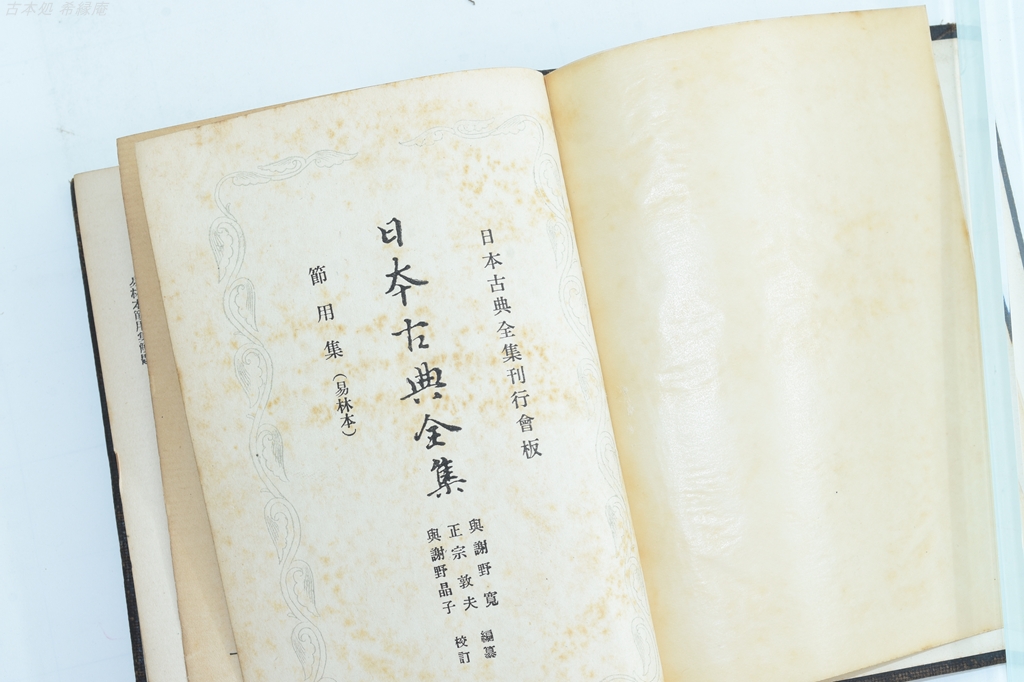 古本処 希縁庵
日本古典全集刊行會板
日本古典全集
與謝野寛
正宗敦夫
與謝野晶子
編纂
校訂
節用集(易林本)